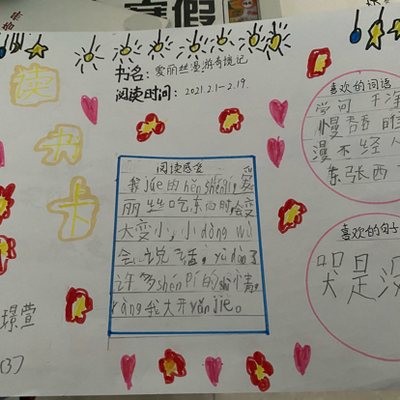 寒假
书名：爱丽丝漫游奇境记
阅读时间：2021.2.1-2.19.
读书卡
阅读感受
我jué的hěnshénjī,爱
丽丝吃东向时会变
大变小，小dòng wù
会说话，yùdào了
许多shénpí的事情，
ràng我大开yǎnjiè。
喜欢的词语
学问 干净
慢吞吞
漫不经
东张西
喜欢的句子
哭是没
璟萱
(3)